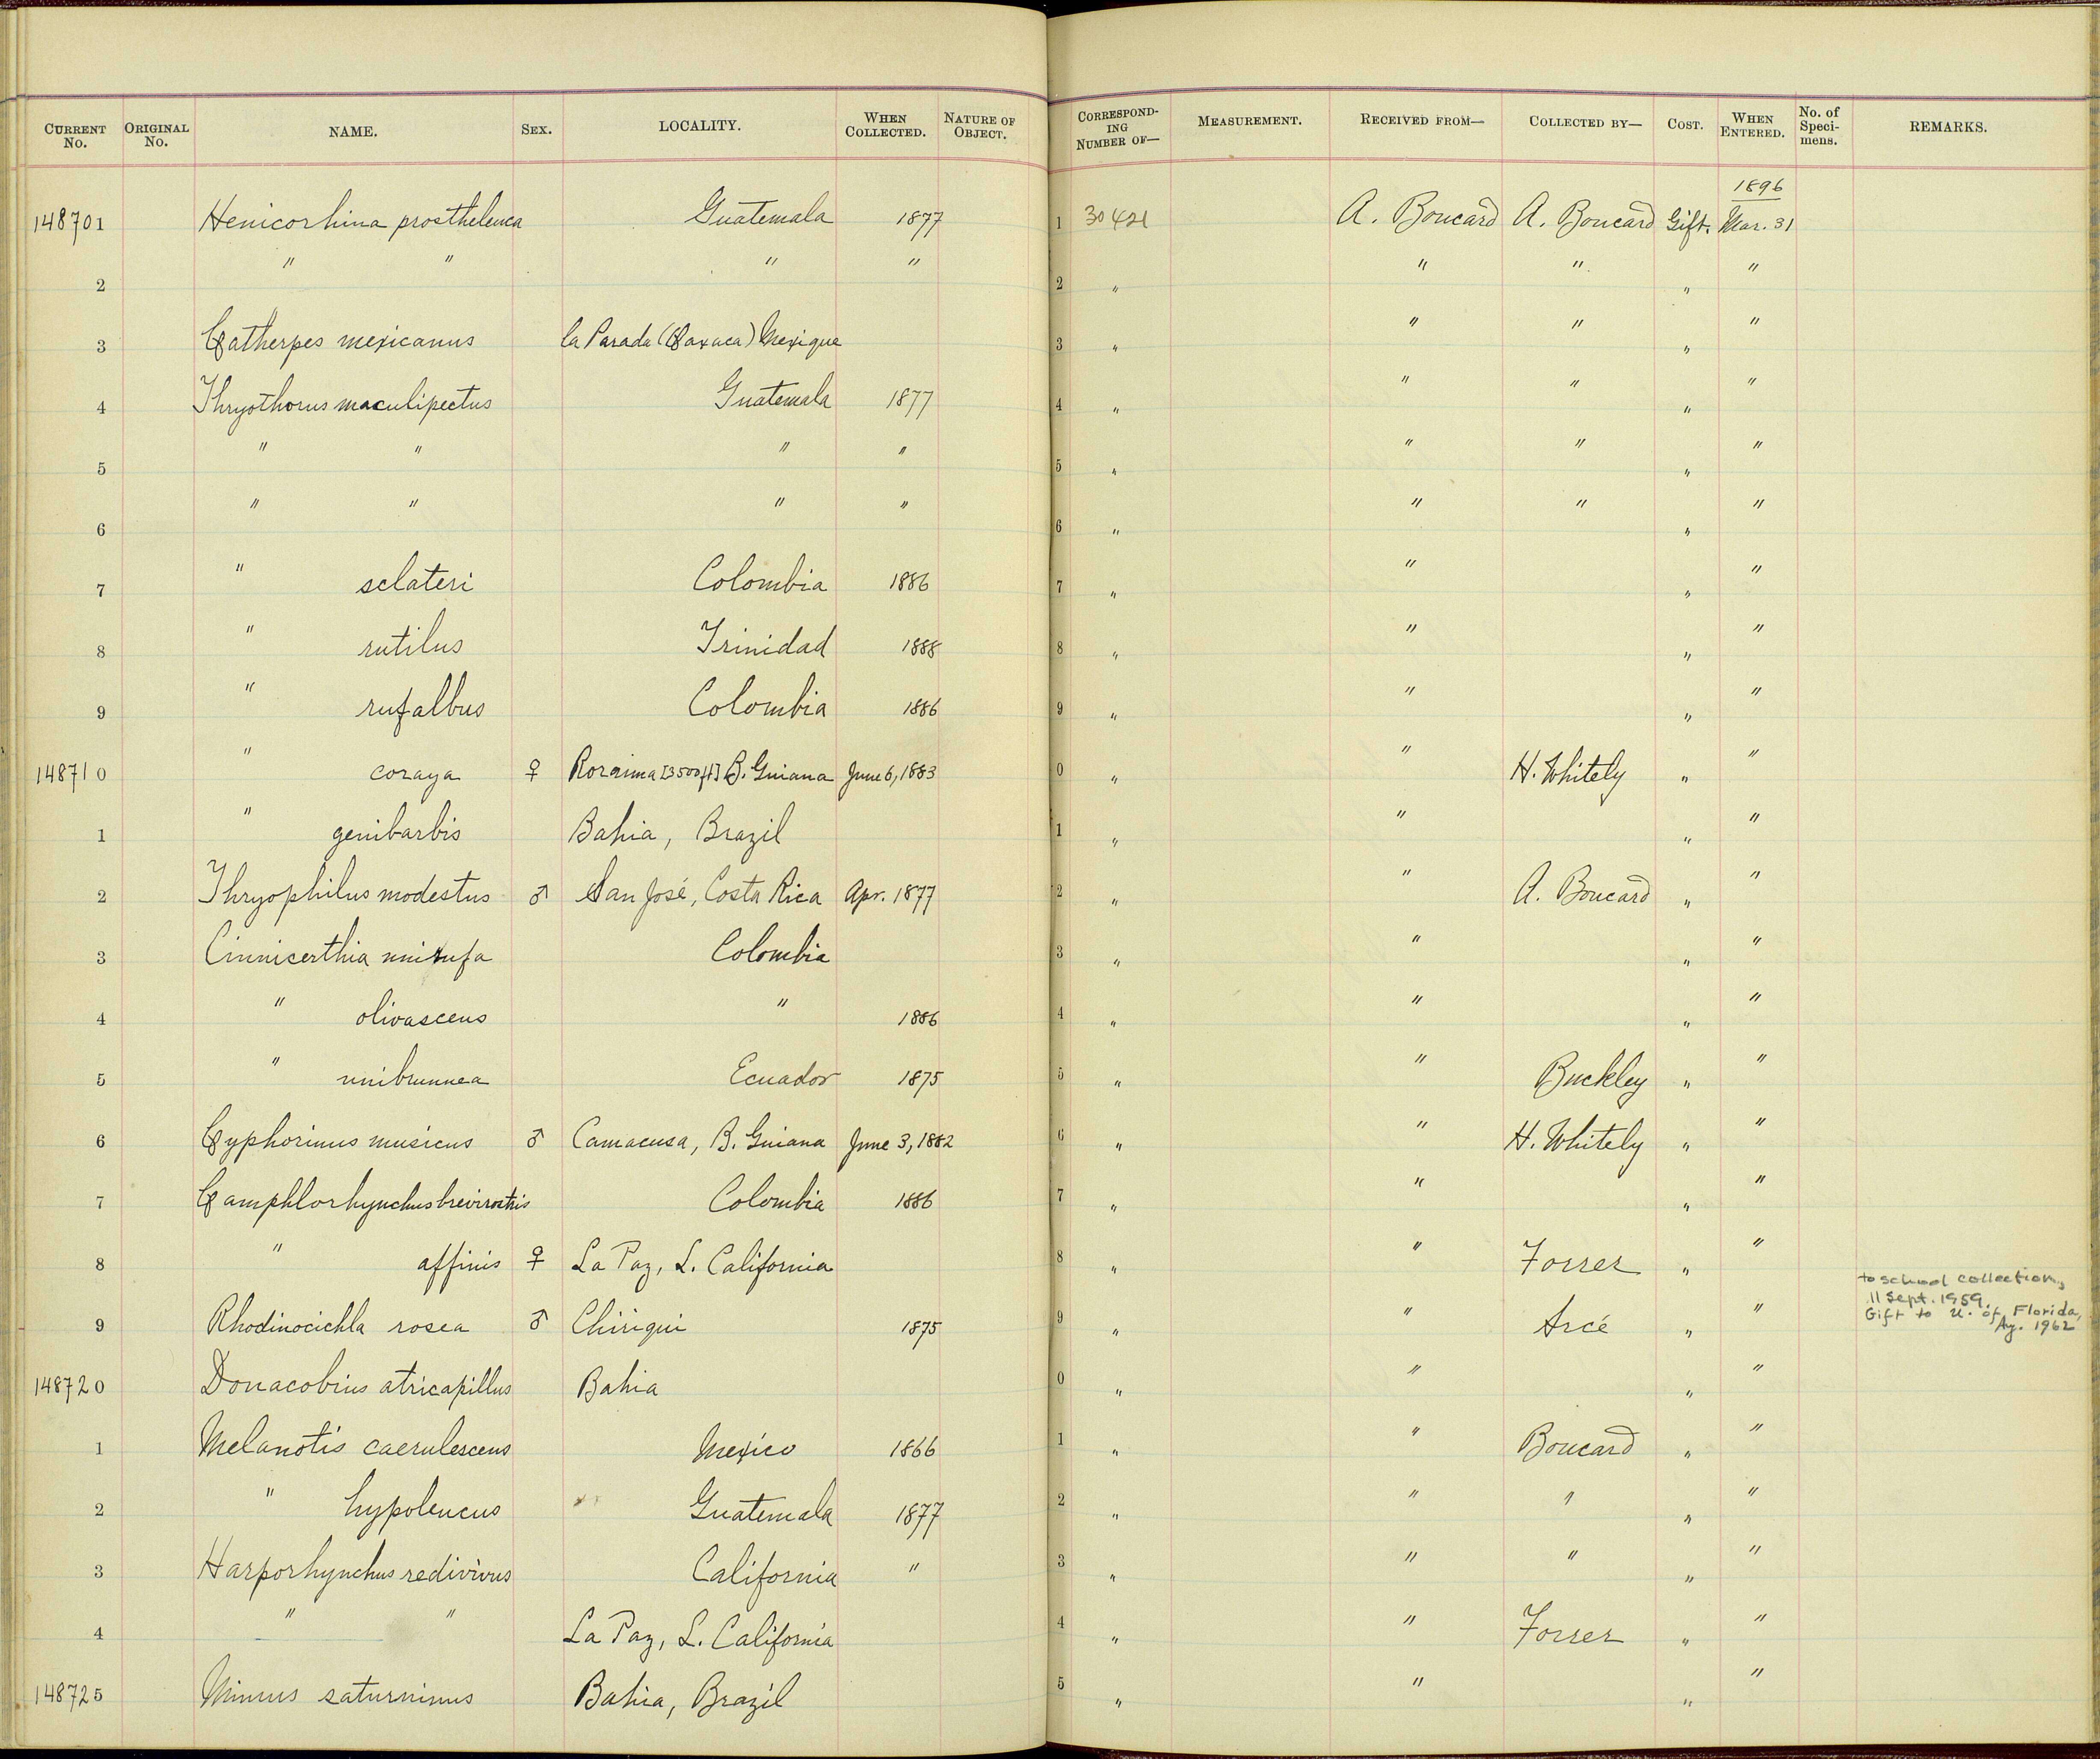 CURRENT No. ORIGINAL No. NAME. SEX. LOCALITY. WHEN COLLECTED. NATURE OF OBJECT. CORRESPONDING NUMBER OF— MEASUREMENT. RECEIVED FROM— COLLECTED BY— COST. WHEN ENTERED. No. of Specimens. REMARKS.
1896
148701 Henicorhina prostheleuca Guatemala 1877 1 30421 A. Boucard A. Boucard Gift. Mar. 31
2 " " " " 2 " " " " "
3 Catherpes mexicanus la Parada (Oaxaca) Mexique 3 " " " " "
4 Thryothorus maculipectus Guatemala 1877 4 " " " " "
5 " " " " 5 " " " " "
6 " " " " 6 " " " " "
7 " sclateri Colombia 1886 7 " " " "
8 " rutilus Trinidad 1888 8 " " " "
9 " rufalbus Colombia 1886 9 " " " "
148710 " coraya ♀ Roraima [3500ft] B. Guiana June 6, 1883 0 " " H. Whitely " "
1 " genibarbis Bahia, Brazil 1 " " " "
2 Thryophilus modestus ♂ San José, Costa Rica Apr. 1877 2 " " A. Boucard " "
3 Cinnicerthia unirufa Colombia 3 " " " "
4 " olivascens " 1886 4 " " " "
5 " unibrunnea Ecuador 1875 5 " " Buckley " "
6 Cyphorinus musicus ♂ Camacusa, B. Guiana June 3, 1882 6 " " H. Whitely " "
7 Camphlorhynchus brevirostris Colombia 1886 7 " " " "
8 " affinis ♀ La Paz, L. California 8 " " Forrer " "
9 Rhodinocichla rosea ♂ Chiriqui 1875 9 " " Arcé " " to school collection,
11 Sept. 1959.
Gift to U. of Florida,
Ag. 1962
148720 Donacobius atricapillus Bahia 0 " " " "
1 Melanotis caerulescens Mexico 1866 1 " " Boucard " "
2 " hypoleucus Guatemala 1877 2 " " " " "
3 Harporhynchus redivivus California " 3 " " " " "
4 " " La Paz, L. California 4 " " Forrer " "
148725 Mimus saturninus Bahia, Brazil 5 " " " "